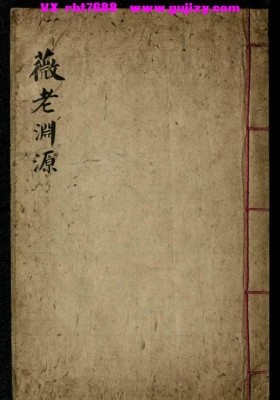 VX cht7688  www.gujizy.com
薇老淵源